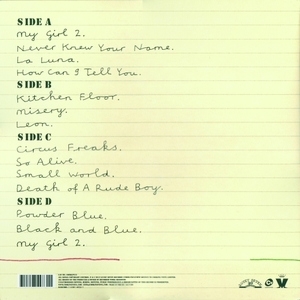 SIDE A
My Girl 2.
Never Knew Your Name.
La Luna.
How Can I Tell You.
SIDE B
Kitchen Floor.
Misery.
Leon.
SIDE C
Circus Freaks.
So Alive.
Small World.
Death of A Rude Boy.
SIDE D
Powder Blue.
Black and Blue.
My Girl 2.